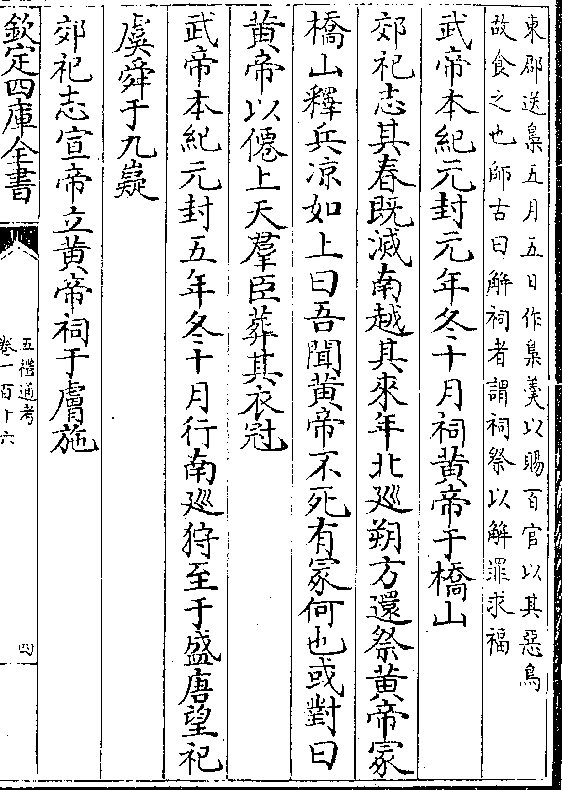 東郡送梟五月五日作梟羹以賜百官以其惡鳥
故食之也師古曰解祠者謂祠祭以解罪求福
武帝本紀元封元年冬十月祠黄帝于橋山
郊祀志其春既滅南越其來年北巡朔方還祭黄帝冡
橋山釋兵凉如上曰吾聞黄帝不死有冡何也或對曰
黄帝以僊上天羣臣葬其衣冠
武帝本紀元封五年冬十月行南巡狩至于盛唐望祀
虞舜于九嶷
郊祀志宣帝立黄帝祠于膚施
欽定四庫全書
五禮通考
卷一百十六
四